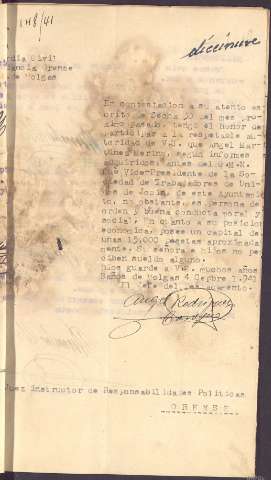 148/41
diecinueve
rdia Civil
ancia Orense
de Molgas
En contestación a su atento es-
crito de fecha 30 del mes pro-
ximo pasado, tengo el honor de
participar a la respetable au-
toridad de VªSª, que Angel Mar-
tinez Merino, según informes
adquiridos, antes del G.M.N.
fue Vice-Presidente de la So-
ciedad de Trabajadores de
de Jocin, de este Ayuntamie
nto, no obstante, es persona de
orden y buena conducta moral y
social. En cuanto a su posición
económica, posee un capital de
unas 15,000 pesetas aproximada
mente. Su señora e hijos no pe
rciben sueldo alguno.
Dios guarde a VªSª muchos años
Baños de Molgas 4 Septbre 1.941
El del
Angel Rodriguez
Juez Instructor de Responsabilidades Politicas
ORENSE